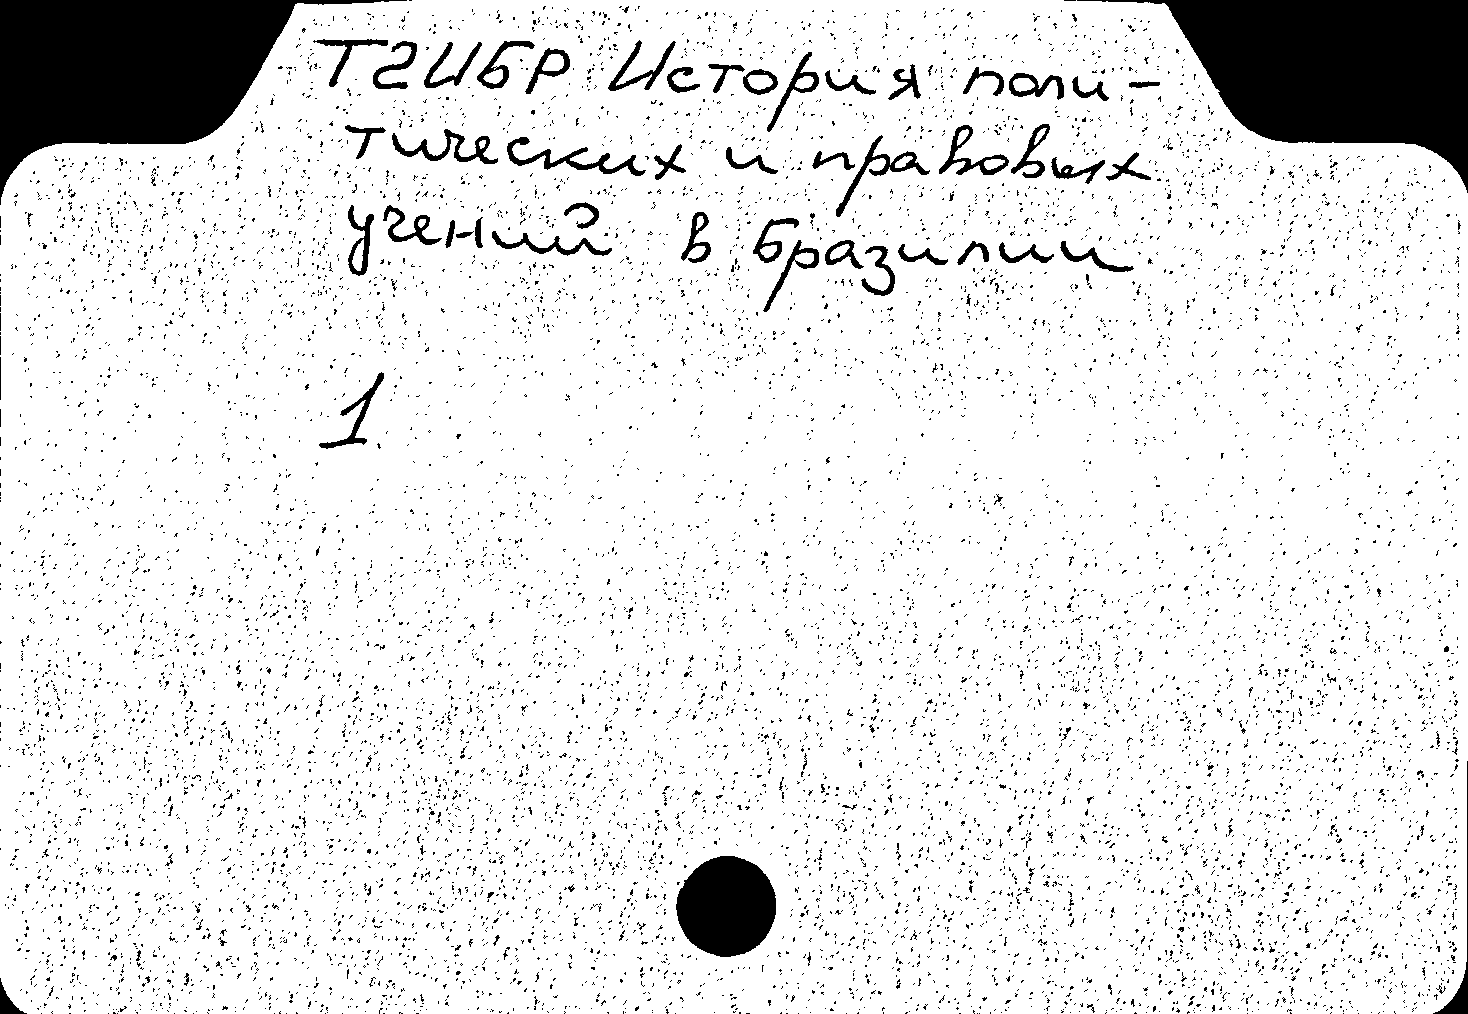 Т2ИБР История поли-
тических и правовых
учений в Бразилии
1